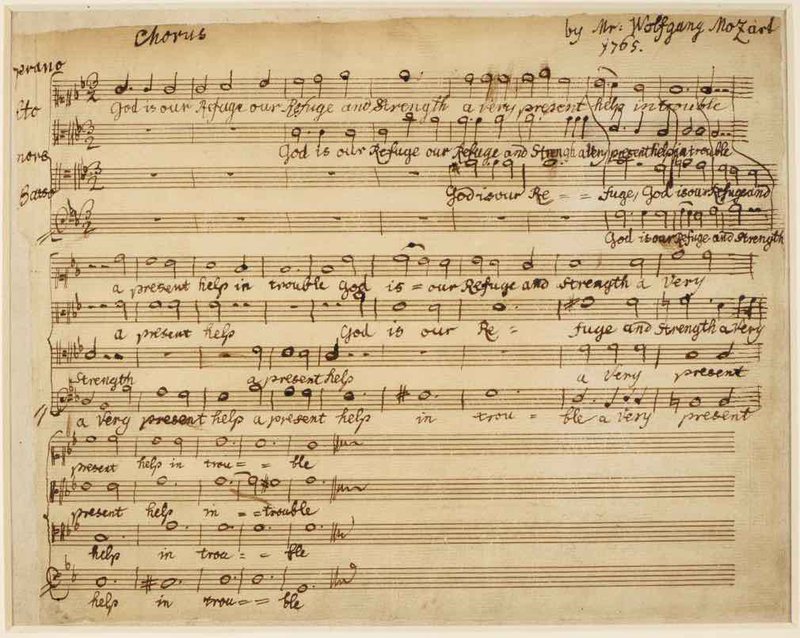 Chorus
by Mr. Wolfgang Mozart
1765.
prano
lto
nore
Basso
God is our Refuge our Refuge and Strength a very present help in trouble
God is our Refuge our Refuge and Strength a Very present help in trouble
God is our Re = = fuge, God is our Refuge and
God is our Refuge and Strength
a present help in trouble God is = our Refuge and Strength a Very
a present help God is our Re = fuge and Strength a Very
Strength a present help a Very present
a Very present help a present help in trou = ble a Very present
present help in trou = = ble
present help in = = trouble
help in trou = = ble
help in trou = = ble